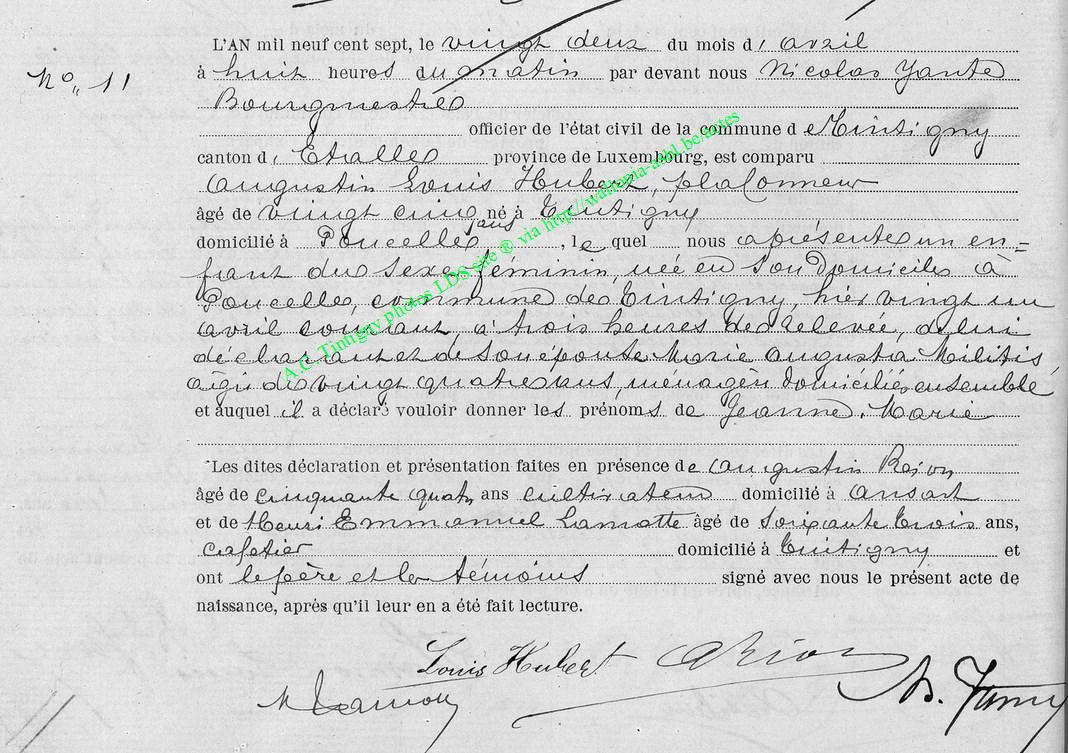 L'AN mil neuf cent sept, le vingt deux du mois d'avril
N° 11
à huit heures du matin par devant nous Nicolas
Bourgmestre
officier de l'état civil de la commune de Tintigny
canton d'Etalle province de Luxembourg, est comparu
Augustin Louis Hubert, plafonneur
âgé de vingt cinq ans né à Tintigny
domicilié à Poncelle, le quel nous a présenté un en=
fant du sexe féminin, née en son domicile à
Poncelle, commune de Tintigny, hier vingt un
avril courant, à trois heures de relevée, de lui
déclarant et de son épouse Marie Augusta
âgée de vingt quatre ans, ménagère domiciliés ensemble
et auquel il a déclaré vouloir donner les prénoms de Jeanne, Marie
Les dites déclaration et présentation faites en présence de Augustin
âgé de cinquante quatre ans cultivateur domicilié à Ansart
et de Henri Emmanuel Lamotte âgé de soixante trois ans,
cafetier domicilié à Tintigny et
ont le père et les témoins signé avec nous le présent acte de
naissance, après qu'il leur en a été fait lecture.
Louis Hubert
A.C. Tintigny photos LDS site ® via http://wallonia-asbl.be/antes